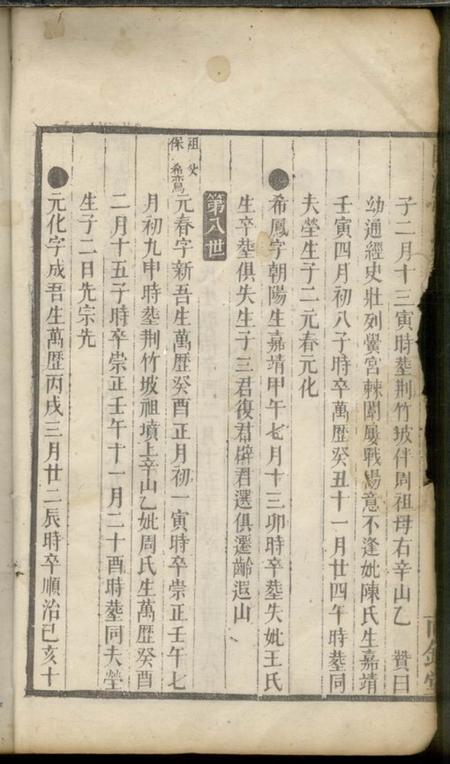 子二月十三寅時塟荆竹坡伴周祖母右辛山乙　贊曰
幼通經史壯列黌宮棘闈屢戰塲意不逢妣陳氏生嘉靖
壬寅四月初八子時卒萬歷癸丑十一月廿四午時塟同
夫塋生子二元春元化
希鳳字朝陽生嘉靖甲午七月十三卯時卒塟失妣王氏
生卒塟俱失生子三君復君辟君選俱遷齡遐山
第八世
祖父
保希鸞
元春字新吾生萬歷癸酉正月初一寅時卒崇正壬午七
月初九申時塟荆竹坡祖墳上辛山乙妣周氏生萬歷癸酉
二月十五子時卒崇正壬午十一月二十酉時塟同夫塋
生子二日先宗先
元化字成吾生萬歷丙戌三月廿二辰時卒順治己亥十